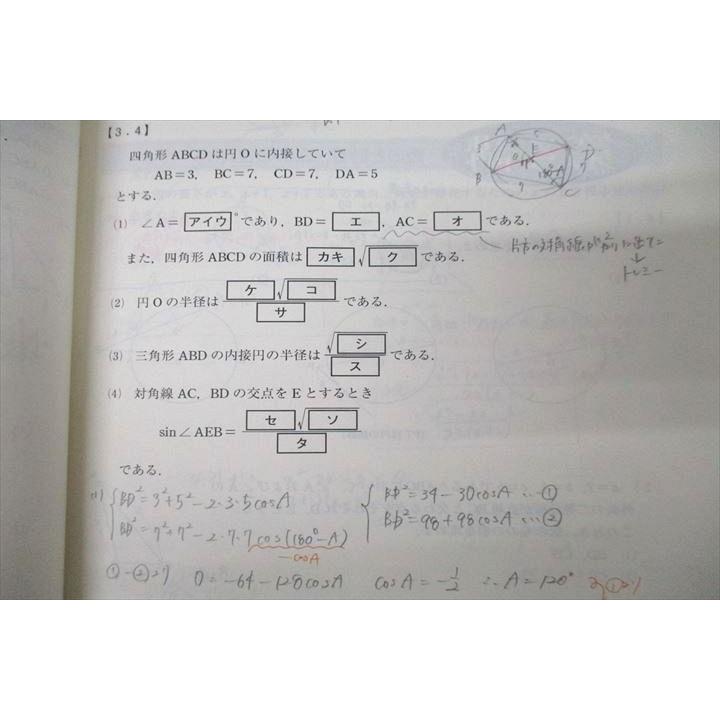 【3.4】
四角形 ABCD は円 O に内接していて
AB=3, BC=7, CD=7, DA=5
とする.
(1) ∠A= アイウ °であり, BD= エ , AC= オ である.
また, 四角形 ABCD の面積は カキ √ク である.
(2) 円 O の半径は ケ√コ / サ である.
(3) 三角形 ABD の内接円の半径は √シ / ス である.
(4) 対角線 AC, BD の交点を E とするとき
sin∠AEB= セ√ソ / タ
である.
A
B
C
D
E
トレミー
(1) BD²=3²+5²−2·3·5cosA
BD²=7²+7²−2·7·7cos(180°−A)
−cosA
BD²=34−30cosA …①
BD²=98+98cosA …②
①−②より 0=−64−128cosA cosA=−1/2 ∴A=120°
①より